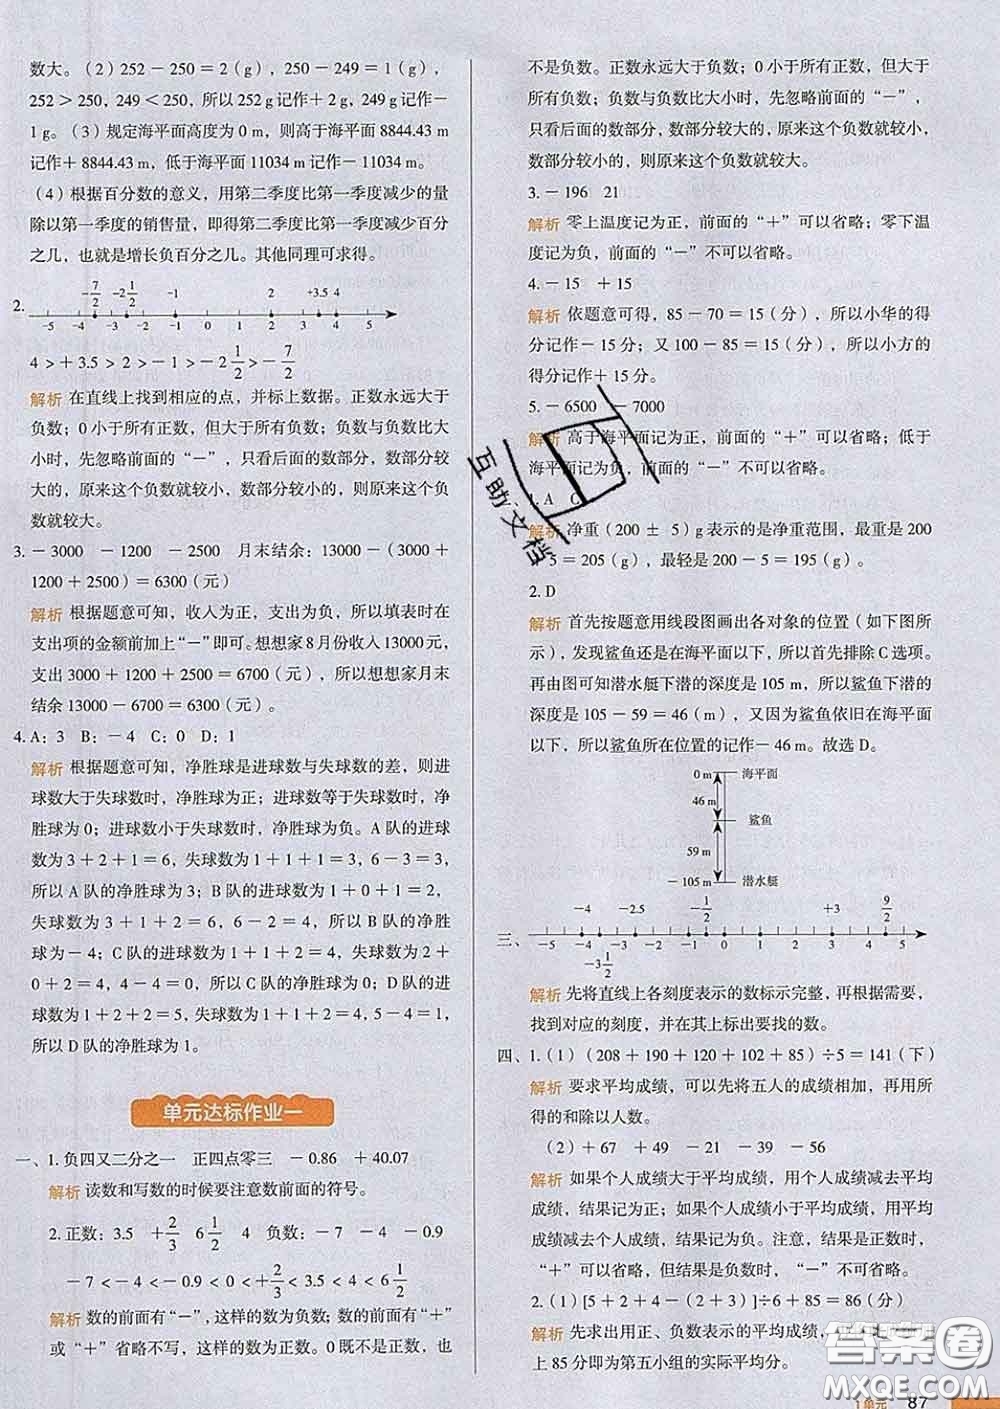 数大。（2）252－250＝2（g），250－249＝1（g），
252＞250，249＜250，所以252 g记作＋2 g，249 g记作－
1 g。（3）规定海平面高度为0 m，则高于海平面8844.43 m
记作＋8844.43 m，低于海平面11034 m记作－11034 m。
（4）根据百分数的意义，用第二季度比第一季度减少的量
除以第一季度的销售量，即得第二季度比第一季度减少百分
之几，也就是增长负百分之几。其他同理可求得。
2. －7/2 －2 1/2 －1 2 ＋3.5 4
－5 －4 －3 －2 －1 0 1 2 3 4 5
4＞＋3.5＞2＞－1＞－2 1/2＞－7/2
解析 在直线上找到相应的点，并标上数据。正数永远大于
负数；0小于所有正数，但大于所有负数；负数与负数比大
小时，先忽略前面的“－”，只看后面的数部分，数部分较
大的，原来这个负数就较小，数部分较小的，原来这个负
数就较大。
3.－3000 －1200 －2500 月末结余：13000－（3000＋
1200＋2500）＝6300（元）
解析 根据题意可知，收入为正，支出为负，所以填表时在
支出项的金额前加上“－”即可。想想家8月份收入13000元，
支出3000＋1200＋2500＝6700（元），所以想想家月末
结余13000－6700＝6300（元）。
4. A：3 B：－4 C：0 D：1
解析 根据题意可知，净胜球是进球数与失球数的差，则进
球数大于失球数时，净胜球为正；进球数等于失球数时，净
胜球为0；进球数小于失球数时，净胜球为负。A队的进球
数为3＋2＋1＝6，失球数为1＋1＋1＝3，6－3＝3，
所以A队的净胜球为3；B队的进球数为1＋0＋1＝2，
失球数为3＋1＋2＝6，6－2＝4，所以B队的净胜球
为－4；C队的进球数为1＋1＋2＝4，失球数为2＋
0＋2＝4，4－4＝0，所以C队的净胜球为0；D队的
进球数为1＋2＋2＝5，失球数为2＋1＋1＝4，5－4＝1，
所以D队的净胜球为1。
单元达标作业一
一、1.负四又二分之一 正四点零三 －0.86 ＋40.07
解析 读数和写数的时候要注意数前面的符号。
2.正数：3.5 ＋2/3 6 1/2 4 负数：－7 －4 －0.9
－7＜－4＜－0.9＜0＜＋2/3＜3.5＜4＜6 1/2
解析 数的前面有“－”，这样的数为负数；数的前面有“＋”
或“＋”省略不写，这样的数为正数。0既不是正数，也
不是负数。正数永远大于负数；0小于所有正数，但大于
所有负数；负数与负数比大小时，先忽略前面的“－”，
只看后面的数部分，数部分较大的，原来这个负数就较小，
数部分较小的，则原来这个负数就较大。
3.－196 21
解析 零上温度记为正，前面的“＋”可以省略；零下温
度记为负，前面的“－”不可以省略。
4.－15 ＋15
解析 依题意可得，85－70＝15（分），所以小华的得
分记作－15分；又100－85＝15（分），所以小方的
得分记作＋15分。
5.－6500 －7000
解析 高于海平面记为正，前面的“＋”可以省略；低于
海平面记为负，前面的“－”不可以省略。
二、1. A C
解析 净重（200 ± 5）g表示的是净重范围，最重是200
＋5＝205（g），最轻是200－5＝195（g）。
2. D
解析 首先按题意用线段图画出各对象的位置（如下图所
示），发现鲨鱼还是在海平面以下，所以首先排除C选项。
再由图可知潜水艇下潜的深度是105 m，所以鲨鱼下潜的
深度是105－59＝46（m），又因为鲨鱼依旧在海平面
以下，所以鲨鱼所在位置的记作－46 m。故选D。
0 m 海平面
46 m
鲨鱼
59 m
－105 m 潜水艇
三、 －4 －2.5 －1/2 ＋3 9/2
－5 －4 －3 －2 －1 0 1 2 3 4 5
－3 1/2
解析 先将直线上各刻度表示的数标示完整，再根据需要，
找到对应的刻度，并在其上标出要找的数。
四、1.（1）（208＋190＋120＋102＋85）÷5＝141（下）
解析 要求平均成绩，可以先将五人的成绩相加，再用所
得的和除以人数。
（2）＋67 ＋49 －21 －39 －56
解析 如果个人成绩大于平均成绩，用个人成绩减去平均
成绩，结果记为正；如果个人成绩小于平均成绩，用平均
成绩减去个人成绩，结果记为负。注意，结果是正数时，
“＋”可以省略，但结果是负数时，“－”不可省略。
2.（1）[5＋2＋4－（2＋3）]÷6＋85＝86（分）
解析 先求出用正、负数表示的平均成绩，
上85分即为第五小组的实际平均分。
1单元 87
互助文档
答案圈
MXQE.COM